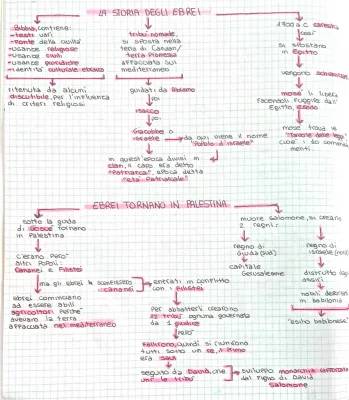 LA STORIA DEGLI EBREI
Bibbia, contiene:
-testi vari
-fonte della civiltà
-usanze religiose
-usanze civili
-usanze giuridiche
-identità culturale ebraica
ritenuta da alcuni
discutibile, per l'influenza
di criteri religiosi
tribù nomade,
si sposta nella
terra di Canaan/
terra promessa
affacciata sul
mediterraneo
guidati da Abramo
poi
isacco
poi
Giacobbe o
israele
da qui viene il nome
"Popolo d'israele"
in quest'epoca divisi in
clan, il capo era detto
"Patriarca", epoca detta
"età Patriarcale"
1700 a.C. carestia
così
si spostano
in Egitto
vengono schiavizzati
mosè li libera
facendoli fuggire dall'
Egitto, esodo
mosè trova le
"tavole della legge"
cioè i 10 comanda
menti.
EBREI TORNANO IN PALESTINA
sotto la guida
di Giosuè tornano
in Palestina
C'erano però
altri popoli:
Cananei e Filistei
ma gli ebrei li sconfissero
cananei
Ebrei cominciano
ad essere abili
agricoltori perché
avevano la terra
affacciata nel mediterraneo
entrati in conflitto
con i Filistei
Per abbatterli crearono
12 tribù ognuna governata
da 1 giudice
però
Fallirono, quindi si riunirono
tutti sotto un re, il primo
era Saul
seguito da David, che
unì le tribù
sviluppò monarchia
del figlio di David
Salomone
muore Salomone, si creano
2 regni:
regno di
Giuda (sud)
capitale
Gerusalemme
regno di
israele (nord)
distrutto
assiri
nobili
in babilonia
"esilio babilonese"